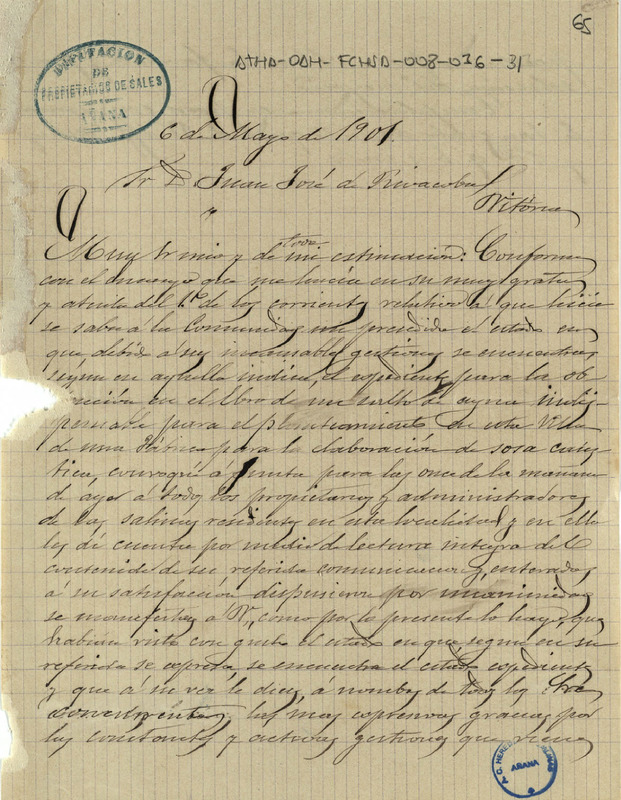 65
ATHA-DAH-FCHSA-008-016-31
DIPUTACION
DE
PROPIETARIOS DE SALES
AÑANA
6 de Mayo de 1901.
Sr D Juan José de
Vitoria
Muy Sr mio y de toda mi estimación: Conforme
con el encargo que me hacía en su muy grata
y atenta del 1.º de los corrientes relativo á que hiciese
se saber á la Comunidad mi presidida el estado en
que debido á sus incansables gestiones se encuentra,
según en aquella indica, el expediente para la ob-
tención en el Ebro de un salto de agua indis-
pensable para el planteamiento en esta Villa
de una Fábrica para la elaboración de sosa caús-
tica, convoqué á junta para las once de la mañana
de ayer á todos los propietarios y administradores
de las salinas residentes en esta localidad y en ella
les dí cuenta por medio de lectura integra del
contenido de su referida comunicacion y, enterados
á su satisfacción dispusieron por unanimidad
se manifestase á V., como por la presente lo hago, que
habian visto con gusto el estado en que, segun en su
referida se expresa, se encuentra el citado expediente
y que á su vez le diese, á nombre de todos los
las mas expresivas gracias por
las constantes y activas gestiones que viene
AÑANA